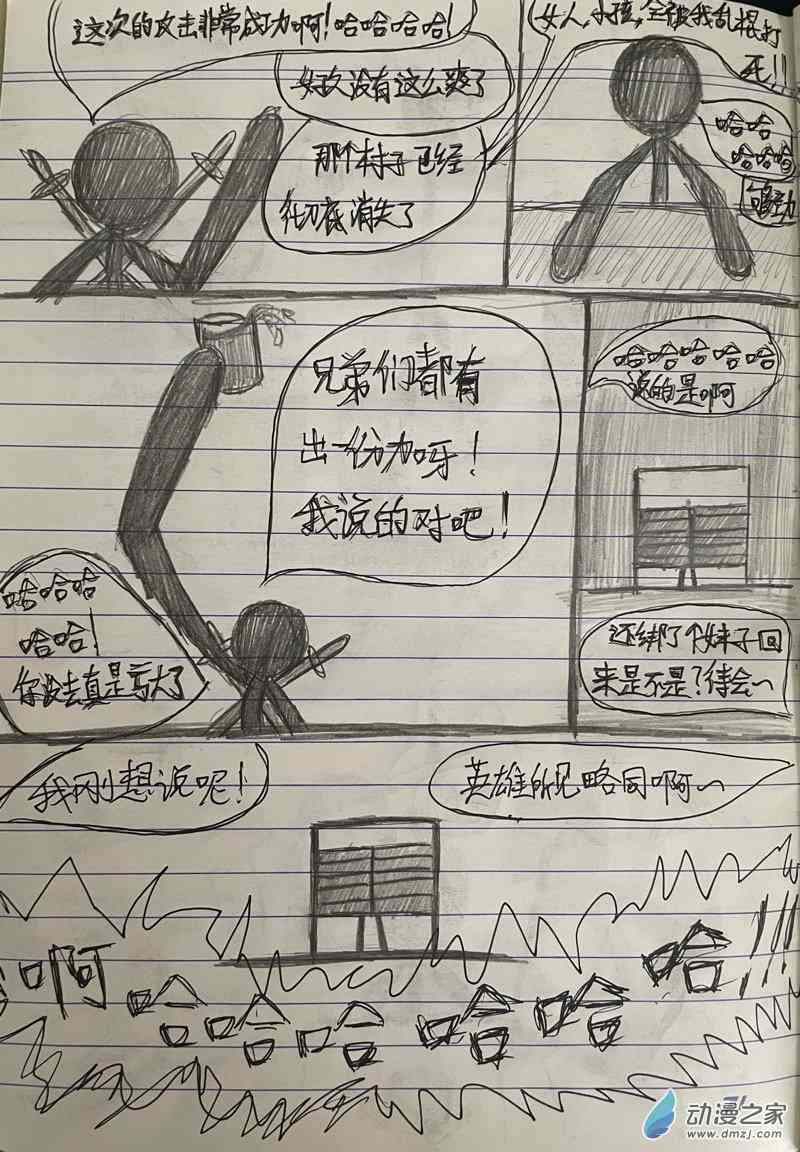 这次的攻击非常成功啊!哈哈哈哈!
好久没有这么爽了
那个村子已经
彻底消失了
女人,小孩,全被我乱棍打
死!!
哈哈
哈哈哈
够劲
兄弟们都有
出一份力呀!
我说的对吧!
哈哈哈
哈哈!
你没去真是亏大了
哈哈哈哈哈
说的是啊
还绑了个妹子回
来是不是?待会~
我刚想说呢!
英雄所见略同啊~
啊哈哈哈哈哈哈!!!
动漫之家
www.dmzj.com